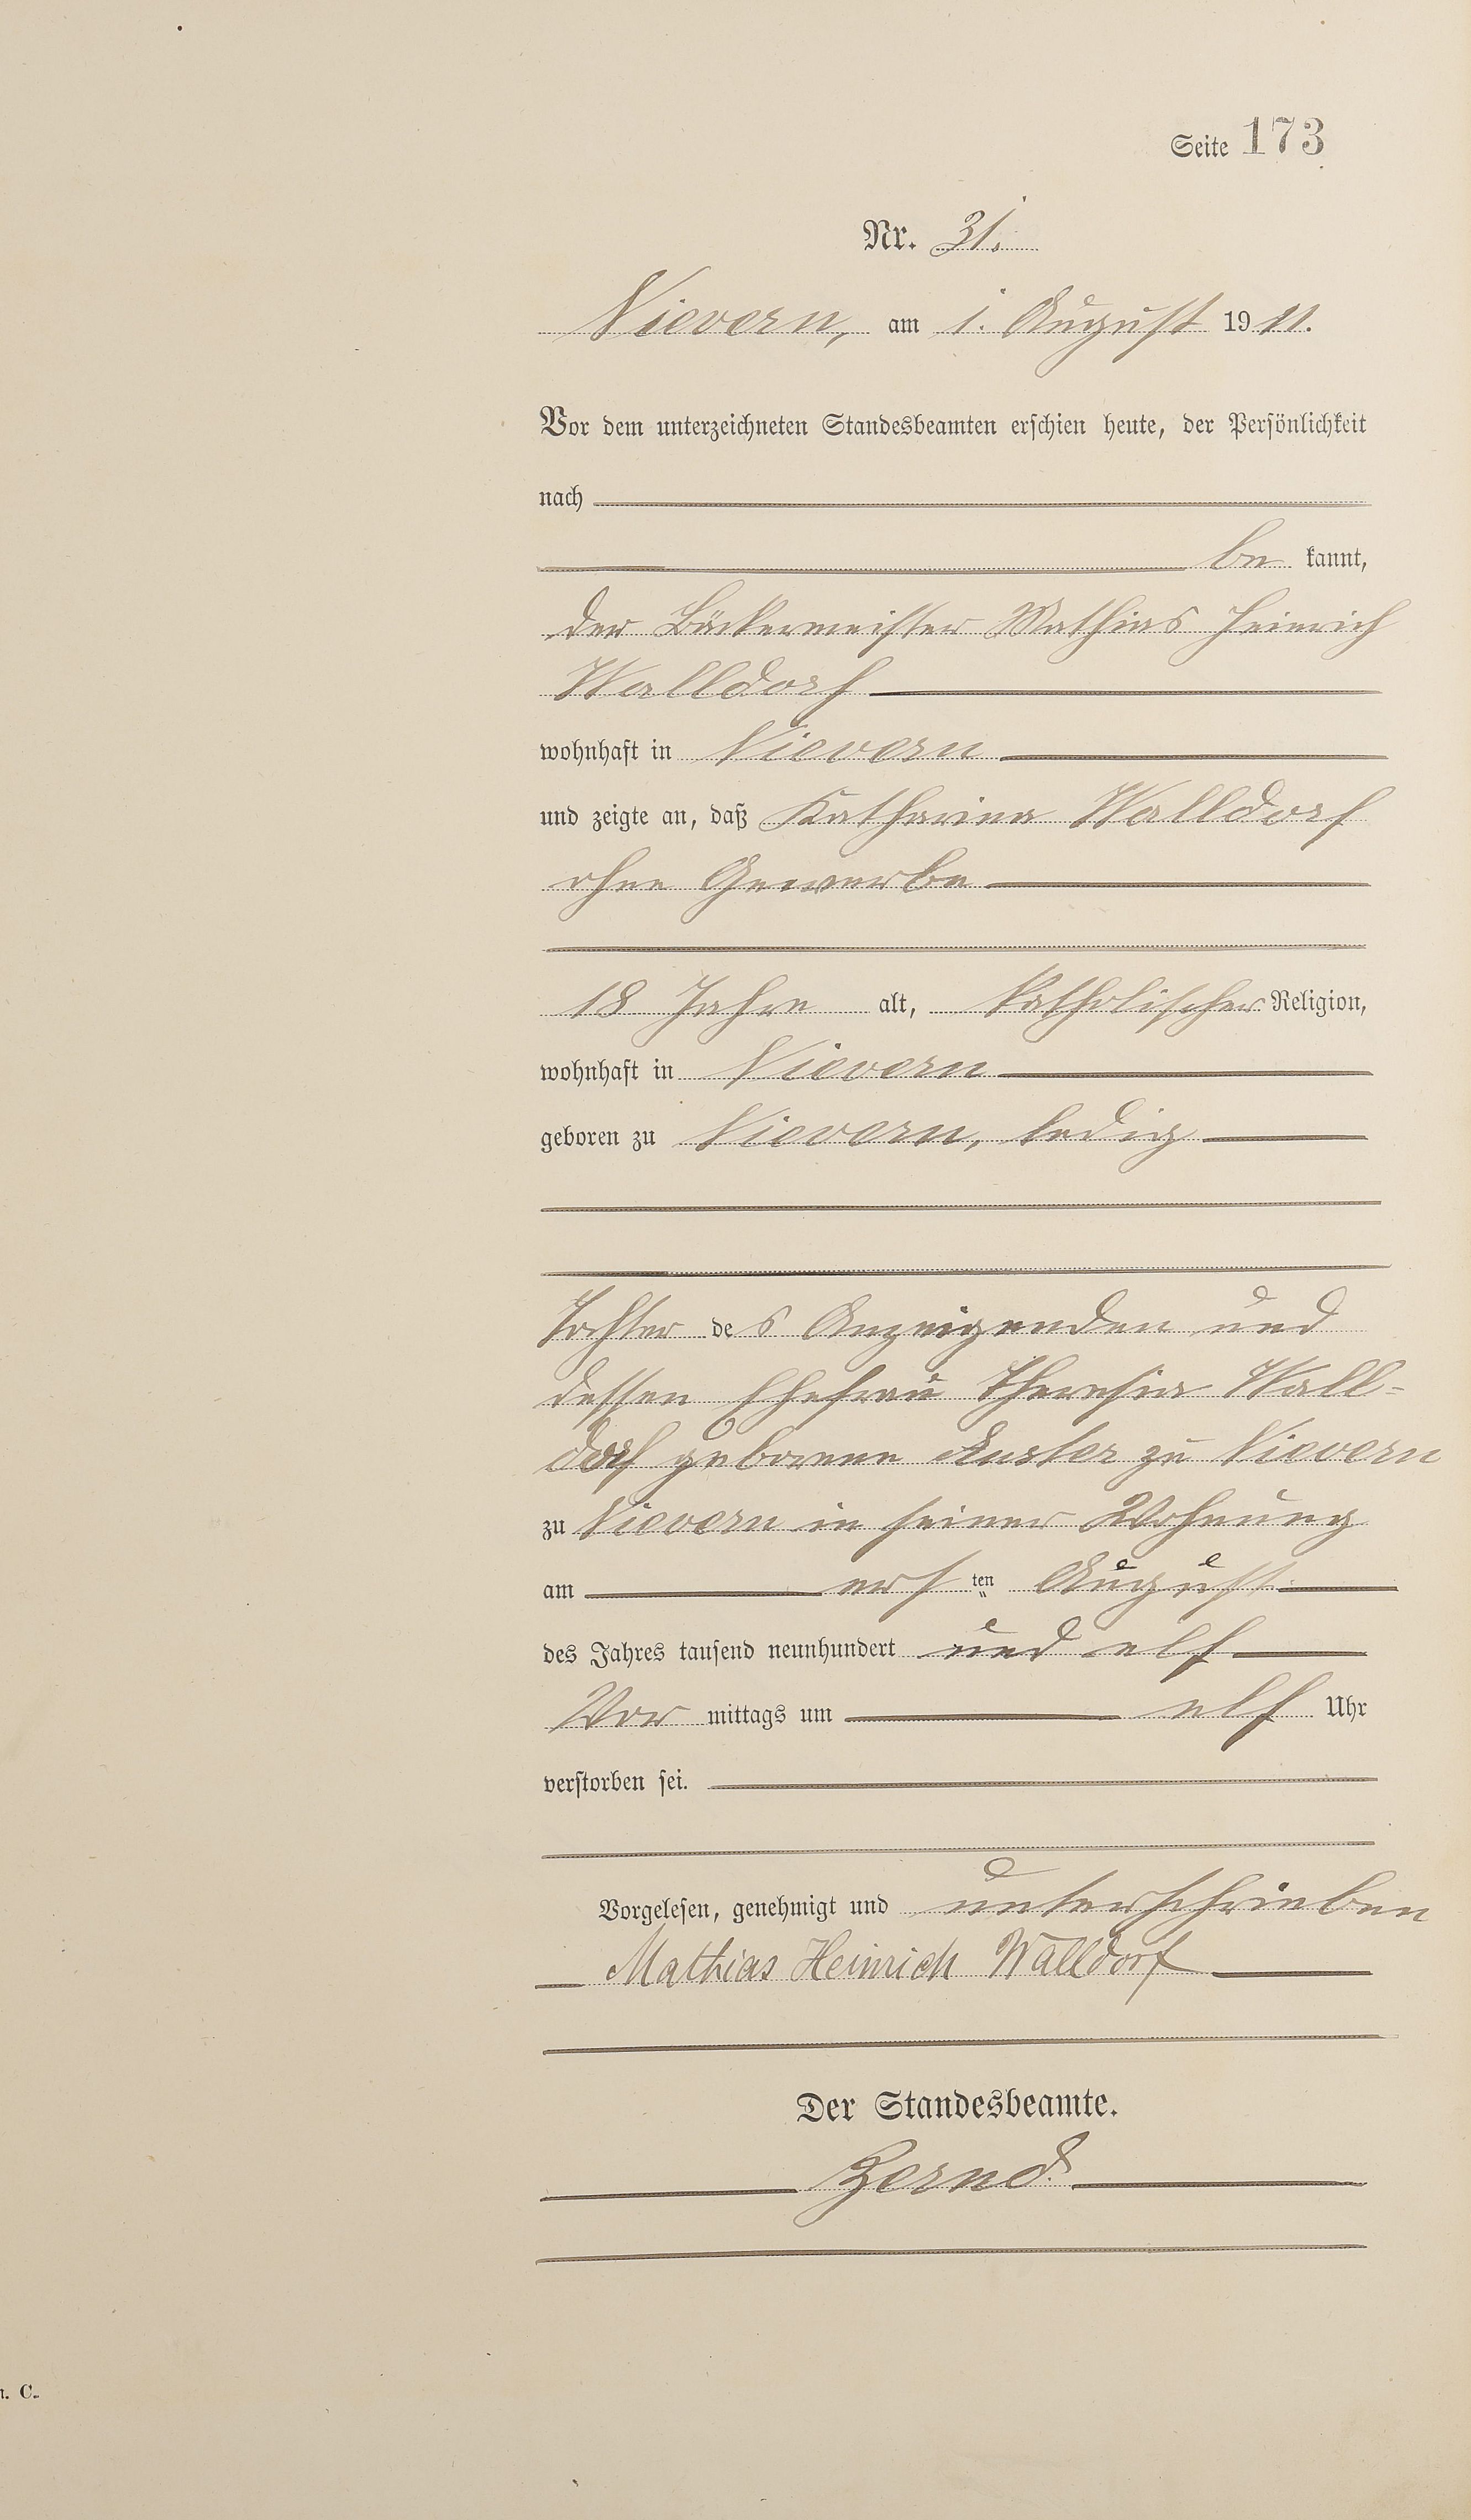 Seite 173
Nr. 31.
Nievern, am 1. August 1911.
Vor dem unterzeichneten Standesbeamten erschien heute, der Persönlichkeit
nach
be kannt,
der Bäckermeister Mathias Heinrich
Walldorf
wohnhaft in Nievern
und zeigte an, daß Katharina Walldorf
ohne Gewerbe
18 Jahre alt, katholischer Religion,
wohnhaft in Nievern
geboren zu Nievern, ledig
Tochter des Anzeigenden und
dessen Ehefrau Theresia Wall-
dorf geborene Auster zu Nievern
zu Nievern in seiner Wohnung
am ersten August
des Jahres tausend neunhundert und elf
Vor mittags um elf Uhr
verstorben sei.
Vorgelesen, genehmigt und unterschrieben
Mathias Heinrich Walldorf
Der Standesbeamte.
Zernd.
n. C.